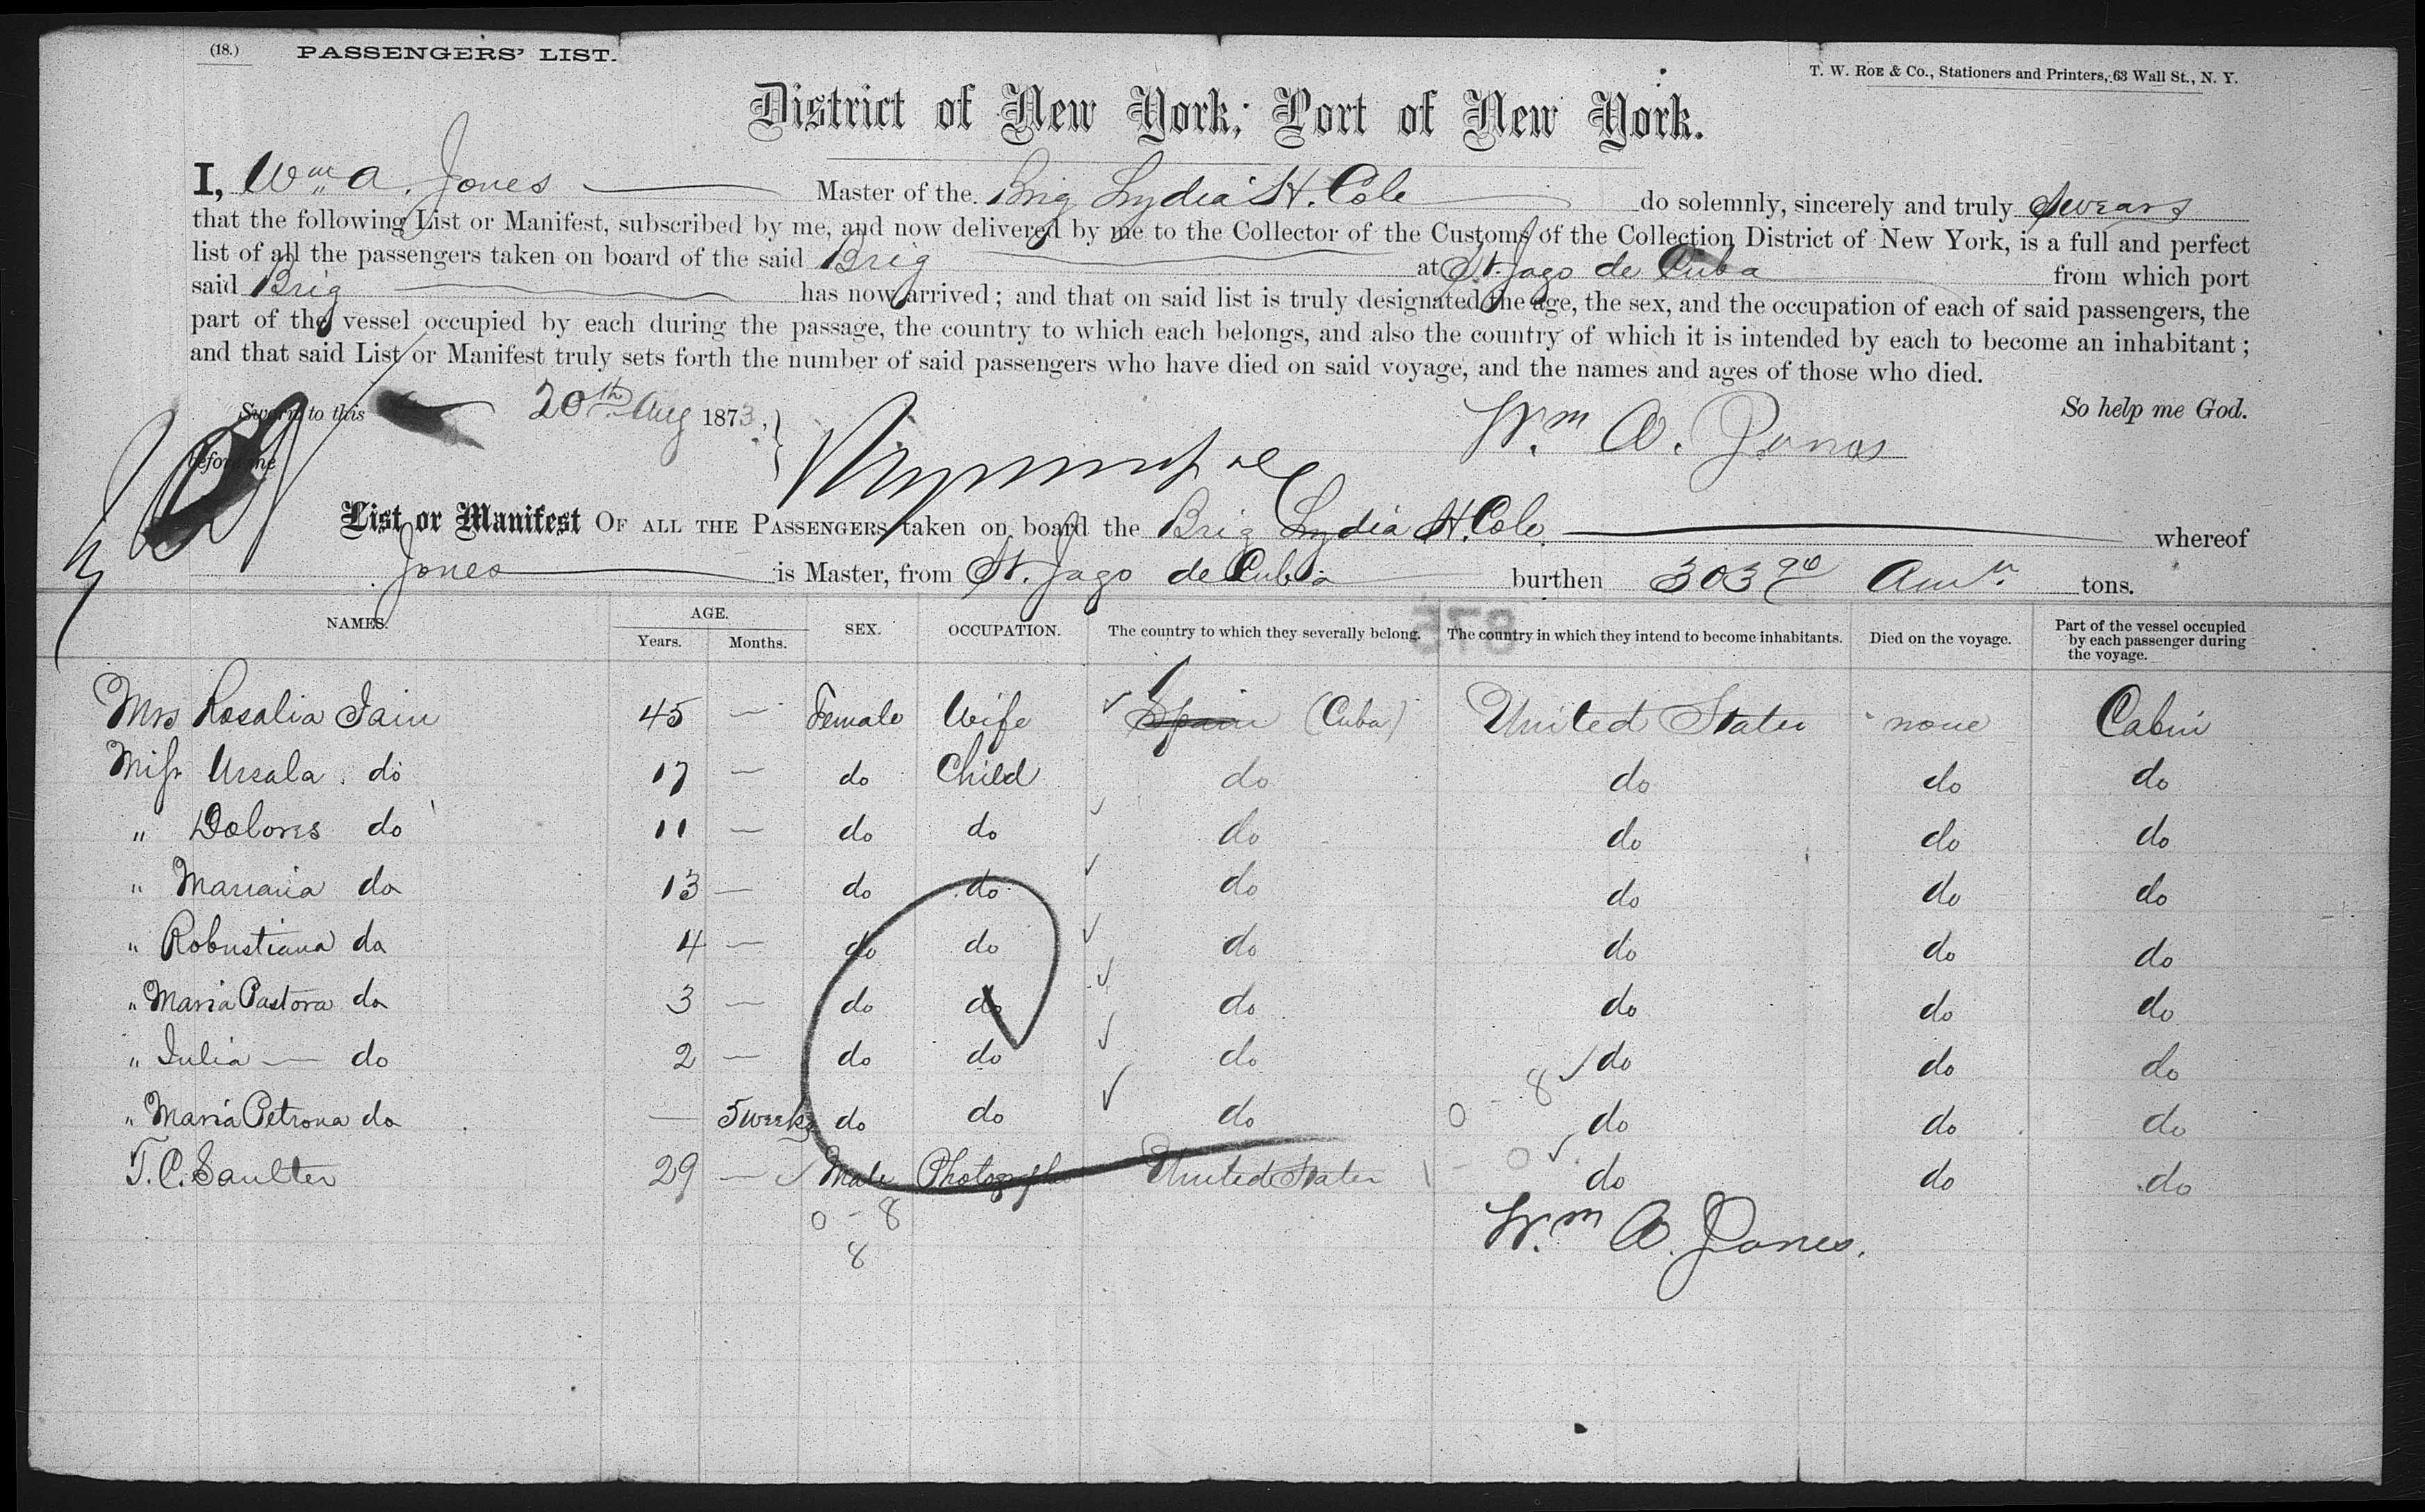 (18.) PASSENGERS' LIST.
T. W. ROE & Co., Stationers and Printers, 63 Wall St., N. Y.
District of New York; Port of New York.
I, Wm A. Jones Master of the Brig Lydia H. Cole do solemnly, sincerely and truly Swears
that the following List or Manifest, subscribed by me, and now delivered by me to the Collector of the Customs of the Collection District of New York, is a full and perfect
list of all the passengers taken on board of the said Brig at St. Jago de Cuba from which port
said Brig has now arrived; and that on said list is truly designated the age, the sex, and the occupation of each of said passengers, the
part of the vessel occupied by each during the passage, the country to which each belongs, and also the country of which it is intended by each to become an inhabitant;
and that said List or Manifest truly sets forth the number of said passengers who have died on said voyage, and the names and ages of those who died.
Sworn to this 20th Aug 1873, Wm A. Jones So help me God.
before me
List or Manifest OF ALL THE PASSENGERS taken on board the Brig Lydia H. Cole whereof
Jones is Master, from St. Jago de Cuba burthen 303 90 Amn tons.
875
NAMES. AGE. Years. Months. SEX. OCCUPATION. The country to which they severally belong. The country in which they intend to become inhabitants. Died on the voyage. Part of the vessel occupied by each passenger during the voyage.
Mrs Rosalia Jain 45 — Female Wife Spain (Cuba) United States none Cabin
Miss Ursala do 17 — do Child do do do do
" Dolores do 11 — do do do do do do
" Mariana do 13 — do do do do do do
" Robustiana do 4 — do do do do do do
" Maria Pastora do 3 — do do do do do do
" Julia — do 2 — do do do do do do
" Maria Petrona do — 5 weeks do do do 0 - 8 do do do
T. C. Saulter 29 — Male Photographer United States 1 - 0 do do do
0 - 8
8
Wm A. Jones.